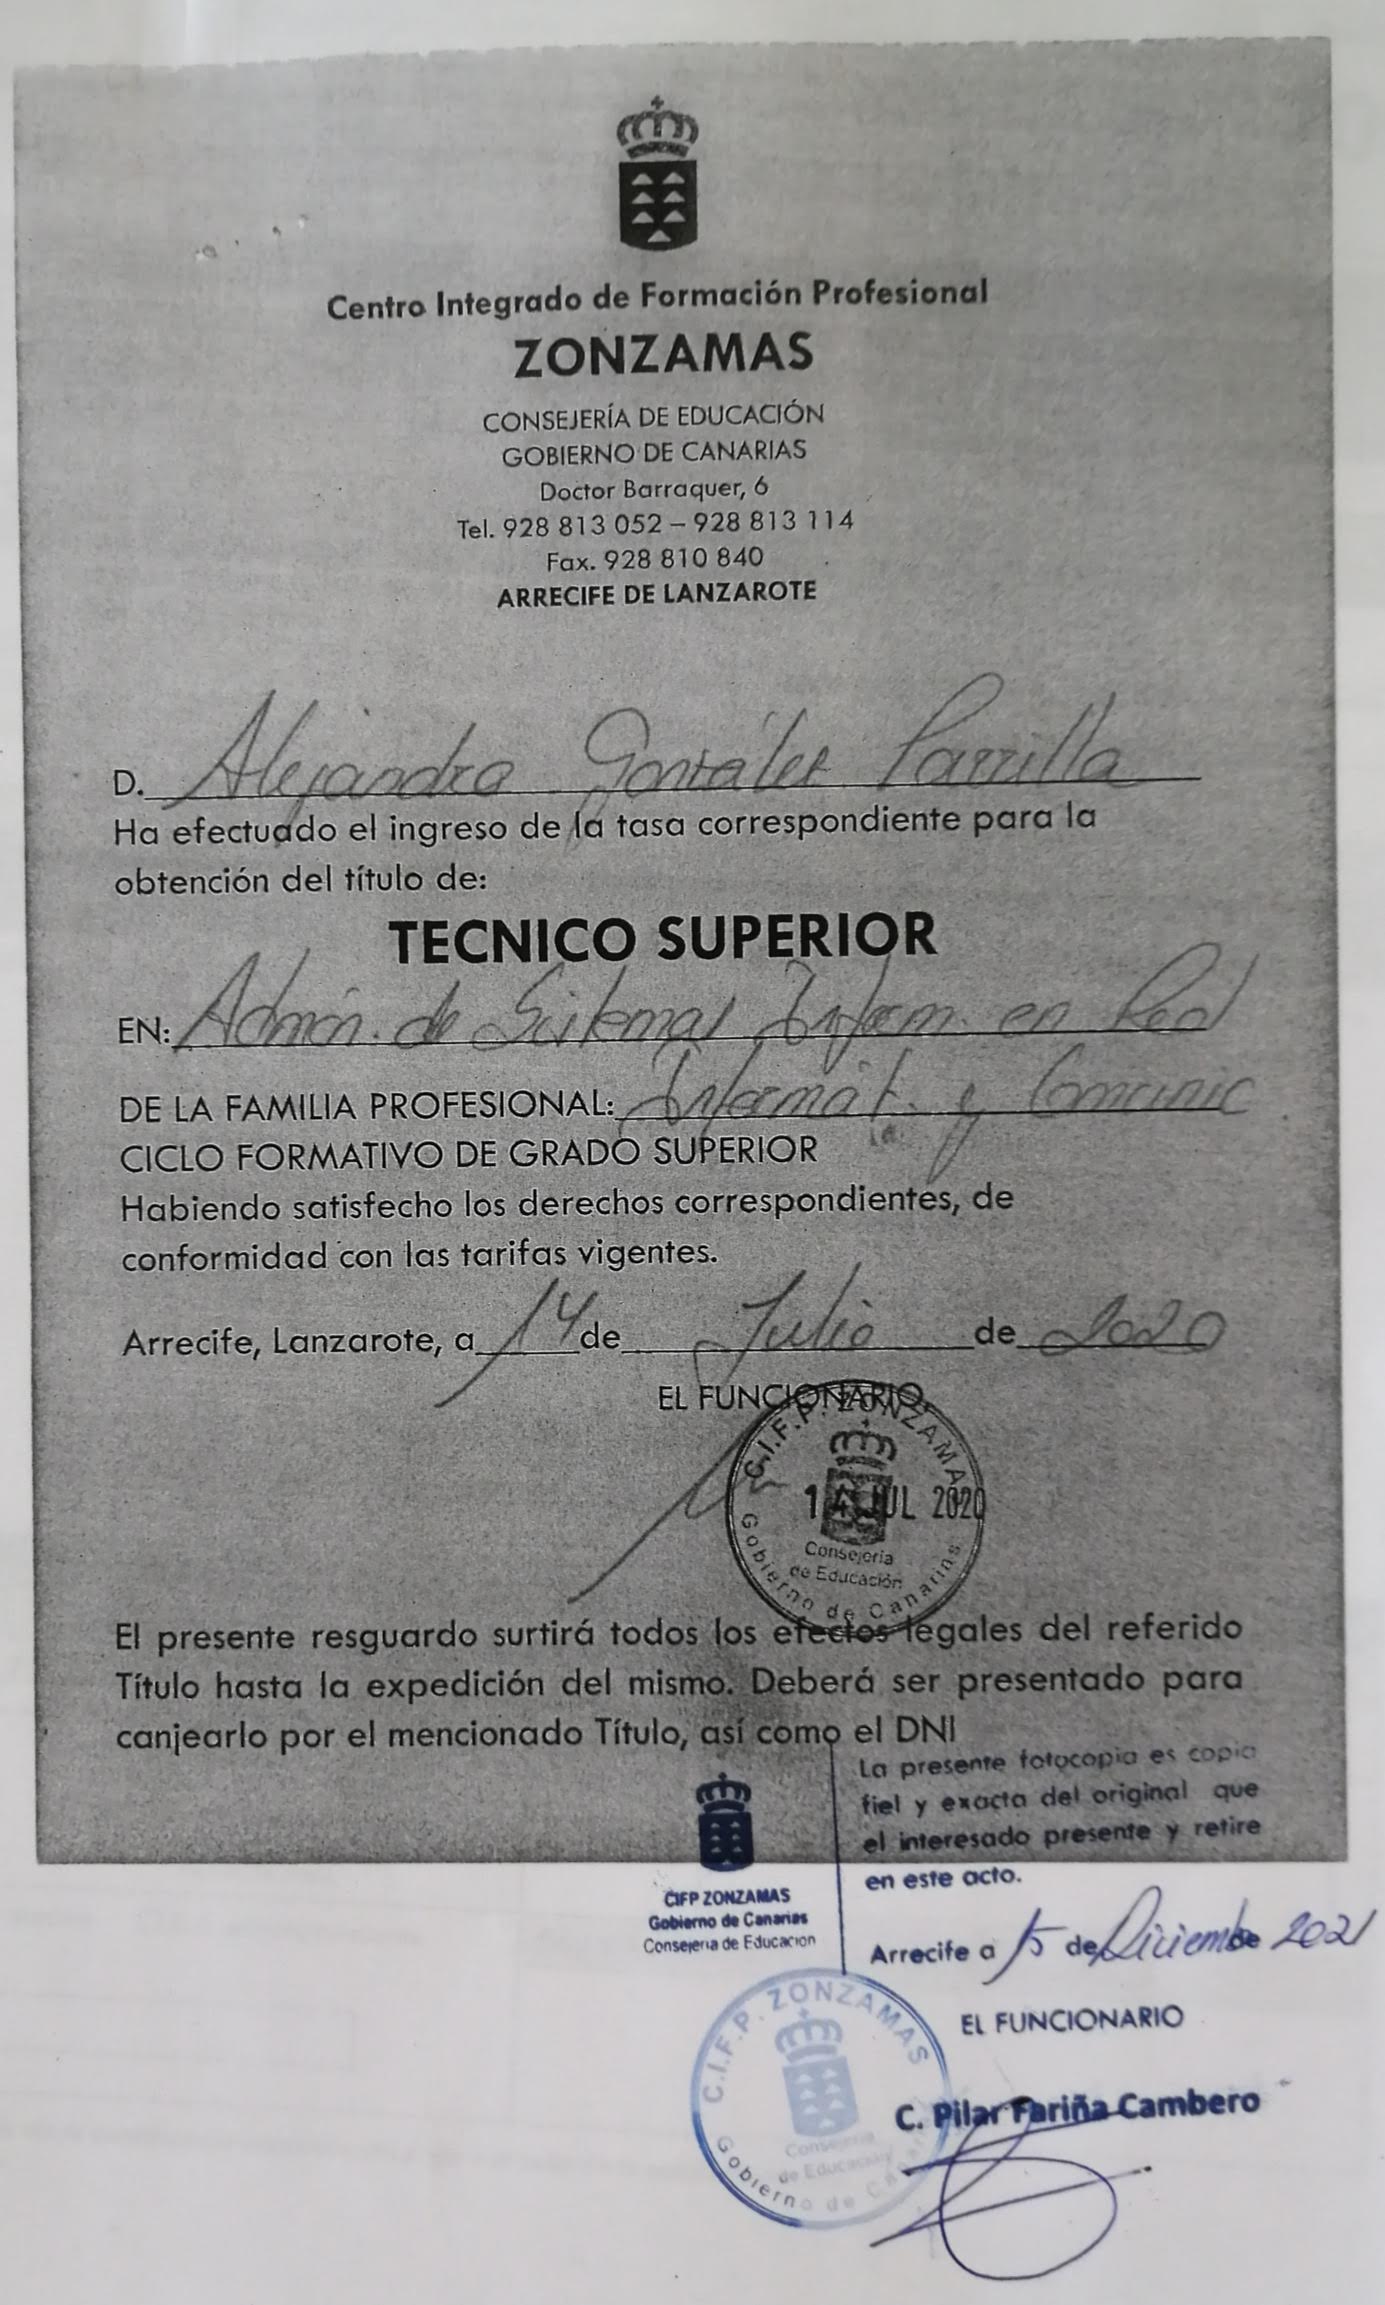 Centro Integrado de Formación Profesional
ZONZAMAS
CONSEJERÍA DE EDUCACIÓN
GOBIERNO DE CANARIAS
Doctor Barraquer, 6
Tel. 928 813 052 – 928 813 114
Fax. 928 810 840
ARRECIFE DE LANZAROTE
D. Alejandra González Parrilla
Ha efectuado el ingreso de la tasa correspondiente para la
obtención del título de:
TECNICO SUPERIOR
EN: Admón. de Sistemas Inform. en Red
DE LA FAMILIA PROFESIONAL: Informát. y Comunic
CICLO FORMATIVO DE GRADO SUPERIOR
Habiendo satisfecho los derechos correspondientes, de
conformidad con las tarifas vigentes.
Arrecife, Lanzarote, a 14 de Julio de 2020
EL FUNCIONARIO,
C.I.F.P. ZONZAMAS
14 JUL 2020
Consejería
de Educación
Gobierno de Canarias
El presente resguardo surtirá todos los efectos legales del referido
Título hasta la expedición del mismo. Deberá ser presentado para
canjearlo por el mencionado Título, así como el DNI
La presente fotocopia es copia
fiel y exacta del original que
el interesado presente y retire
en este acto.
CIFP ZONZAMAS
Gobierno de Canarias
Consejería de Educacion
Arrecife a 15 de Diciembre de 2021
EL FUNCIONARIO
C.I.F.P. ZONZAMAS
Consejería
de Educación
Gobierno de Canarias
C. Pilar Fariña Cambero